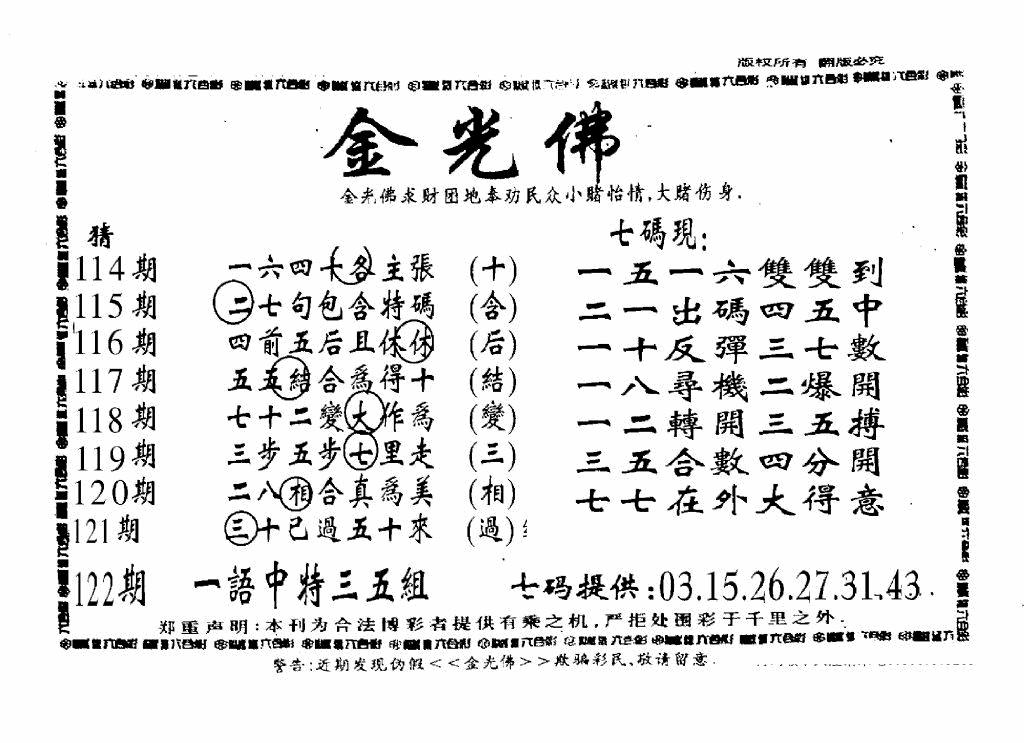 版权所有 翻版必究
金光佛
金光佛求财团地奉劝民众小赌怡情,大赌伤身.
猜
七碼現:
114期 一六四十各主張 (十) 一五一六雙雙到
115期 二七句包含特碼 (含) 二一出碼四五中
116期 四前五后且休休 (后) 一十反彈三七數
117期 五五結合爲得十 (結) 一八尋機二爆開
118期 七十二變大作爲 (變) 一二轉開三五搏
119期 三步五步七里走 (三) 三五合數四分開
120期 二八相合真爲美 (相) 七七在外大得意
121期 三十已過五十來 (過)
122期 一語中特三五組 七码提供:03.15.26.27.31.43
郑重声明:本刊为合法博彩者提供有乘之机,严拒处围彩于千里之外.
警告:近期发现伪假<<金光佛>>欺骗彩民、敬请留意.